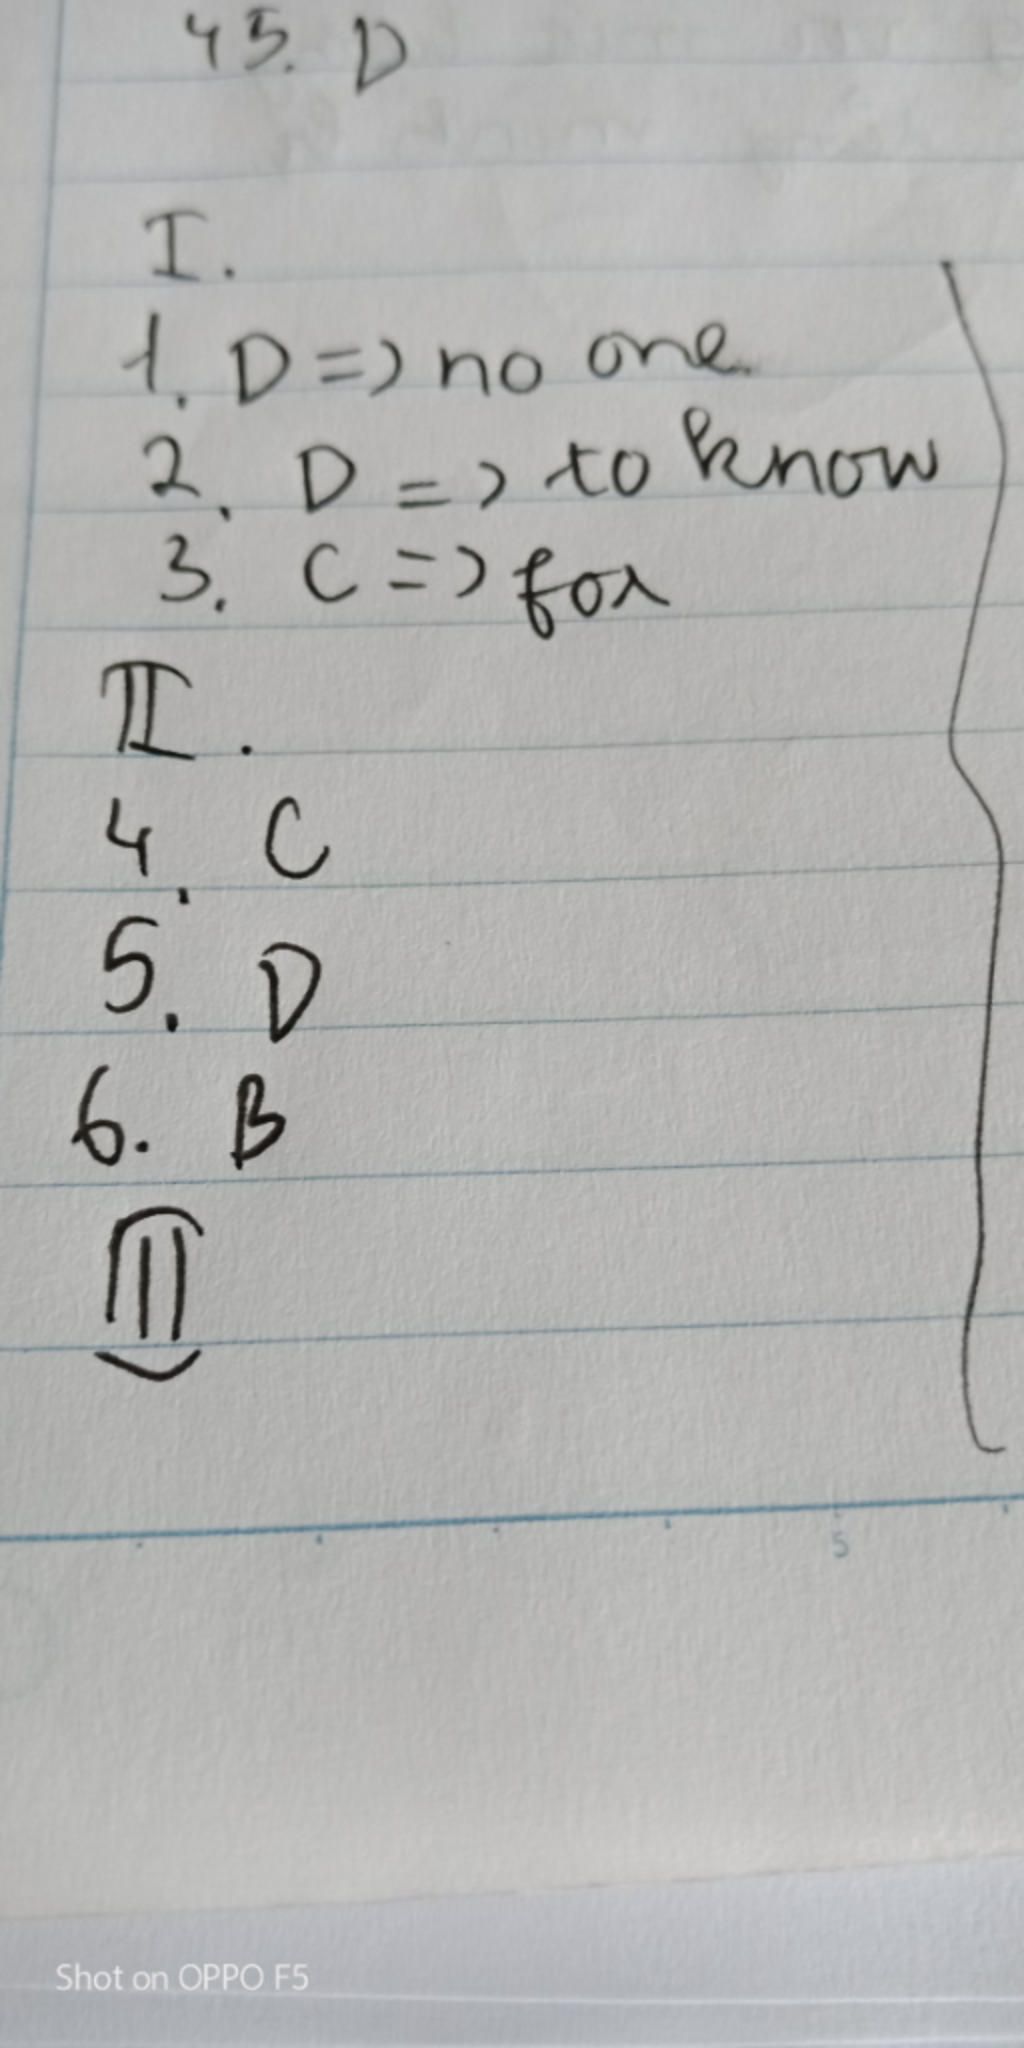 45. D
I.
1. D => no one
2. D => to know
3. C => for
II.
4. C
5. D
6. B
III
5
Shot on OPPO F5